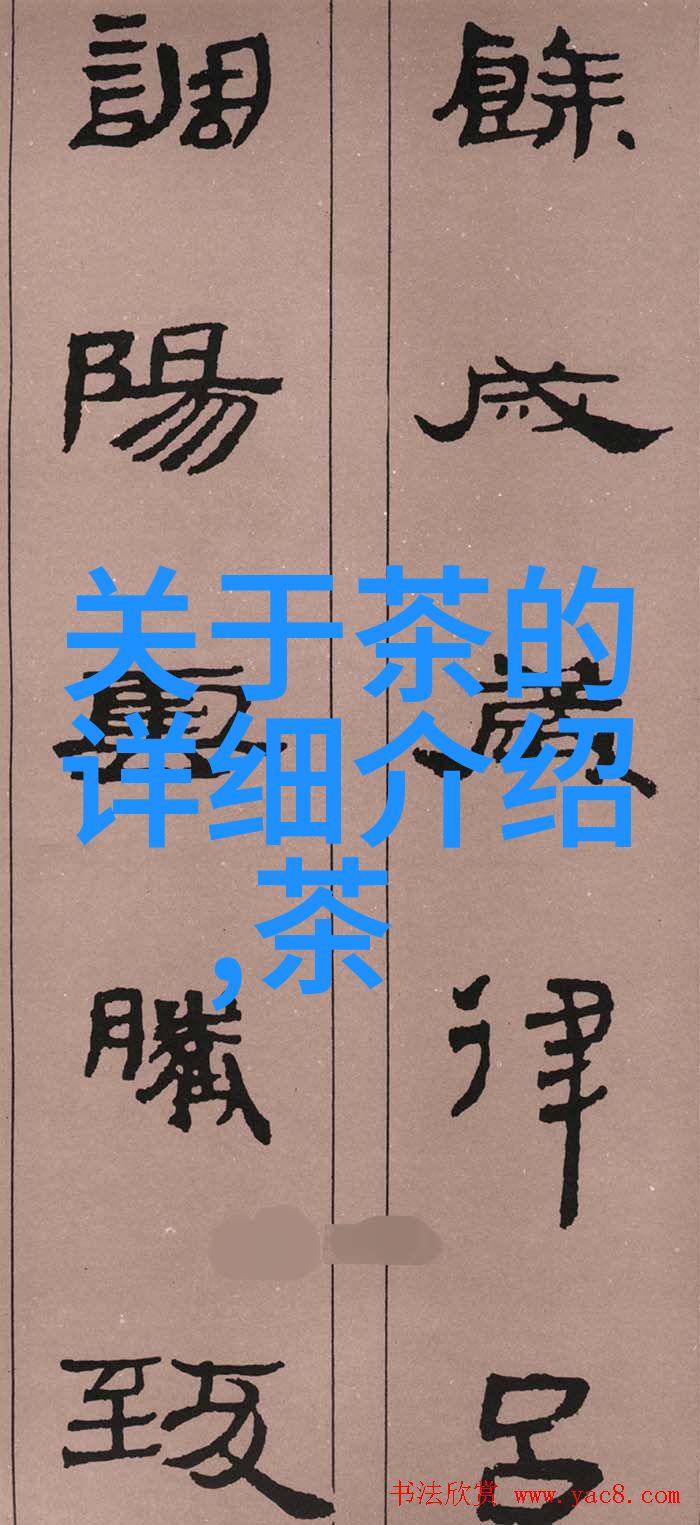 餘成歲律呂
調陽雲騰致
关于茶的
详细介绍
,茶
书法欣赏 www.yac8.com